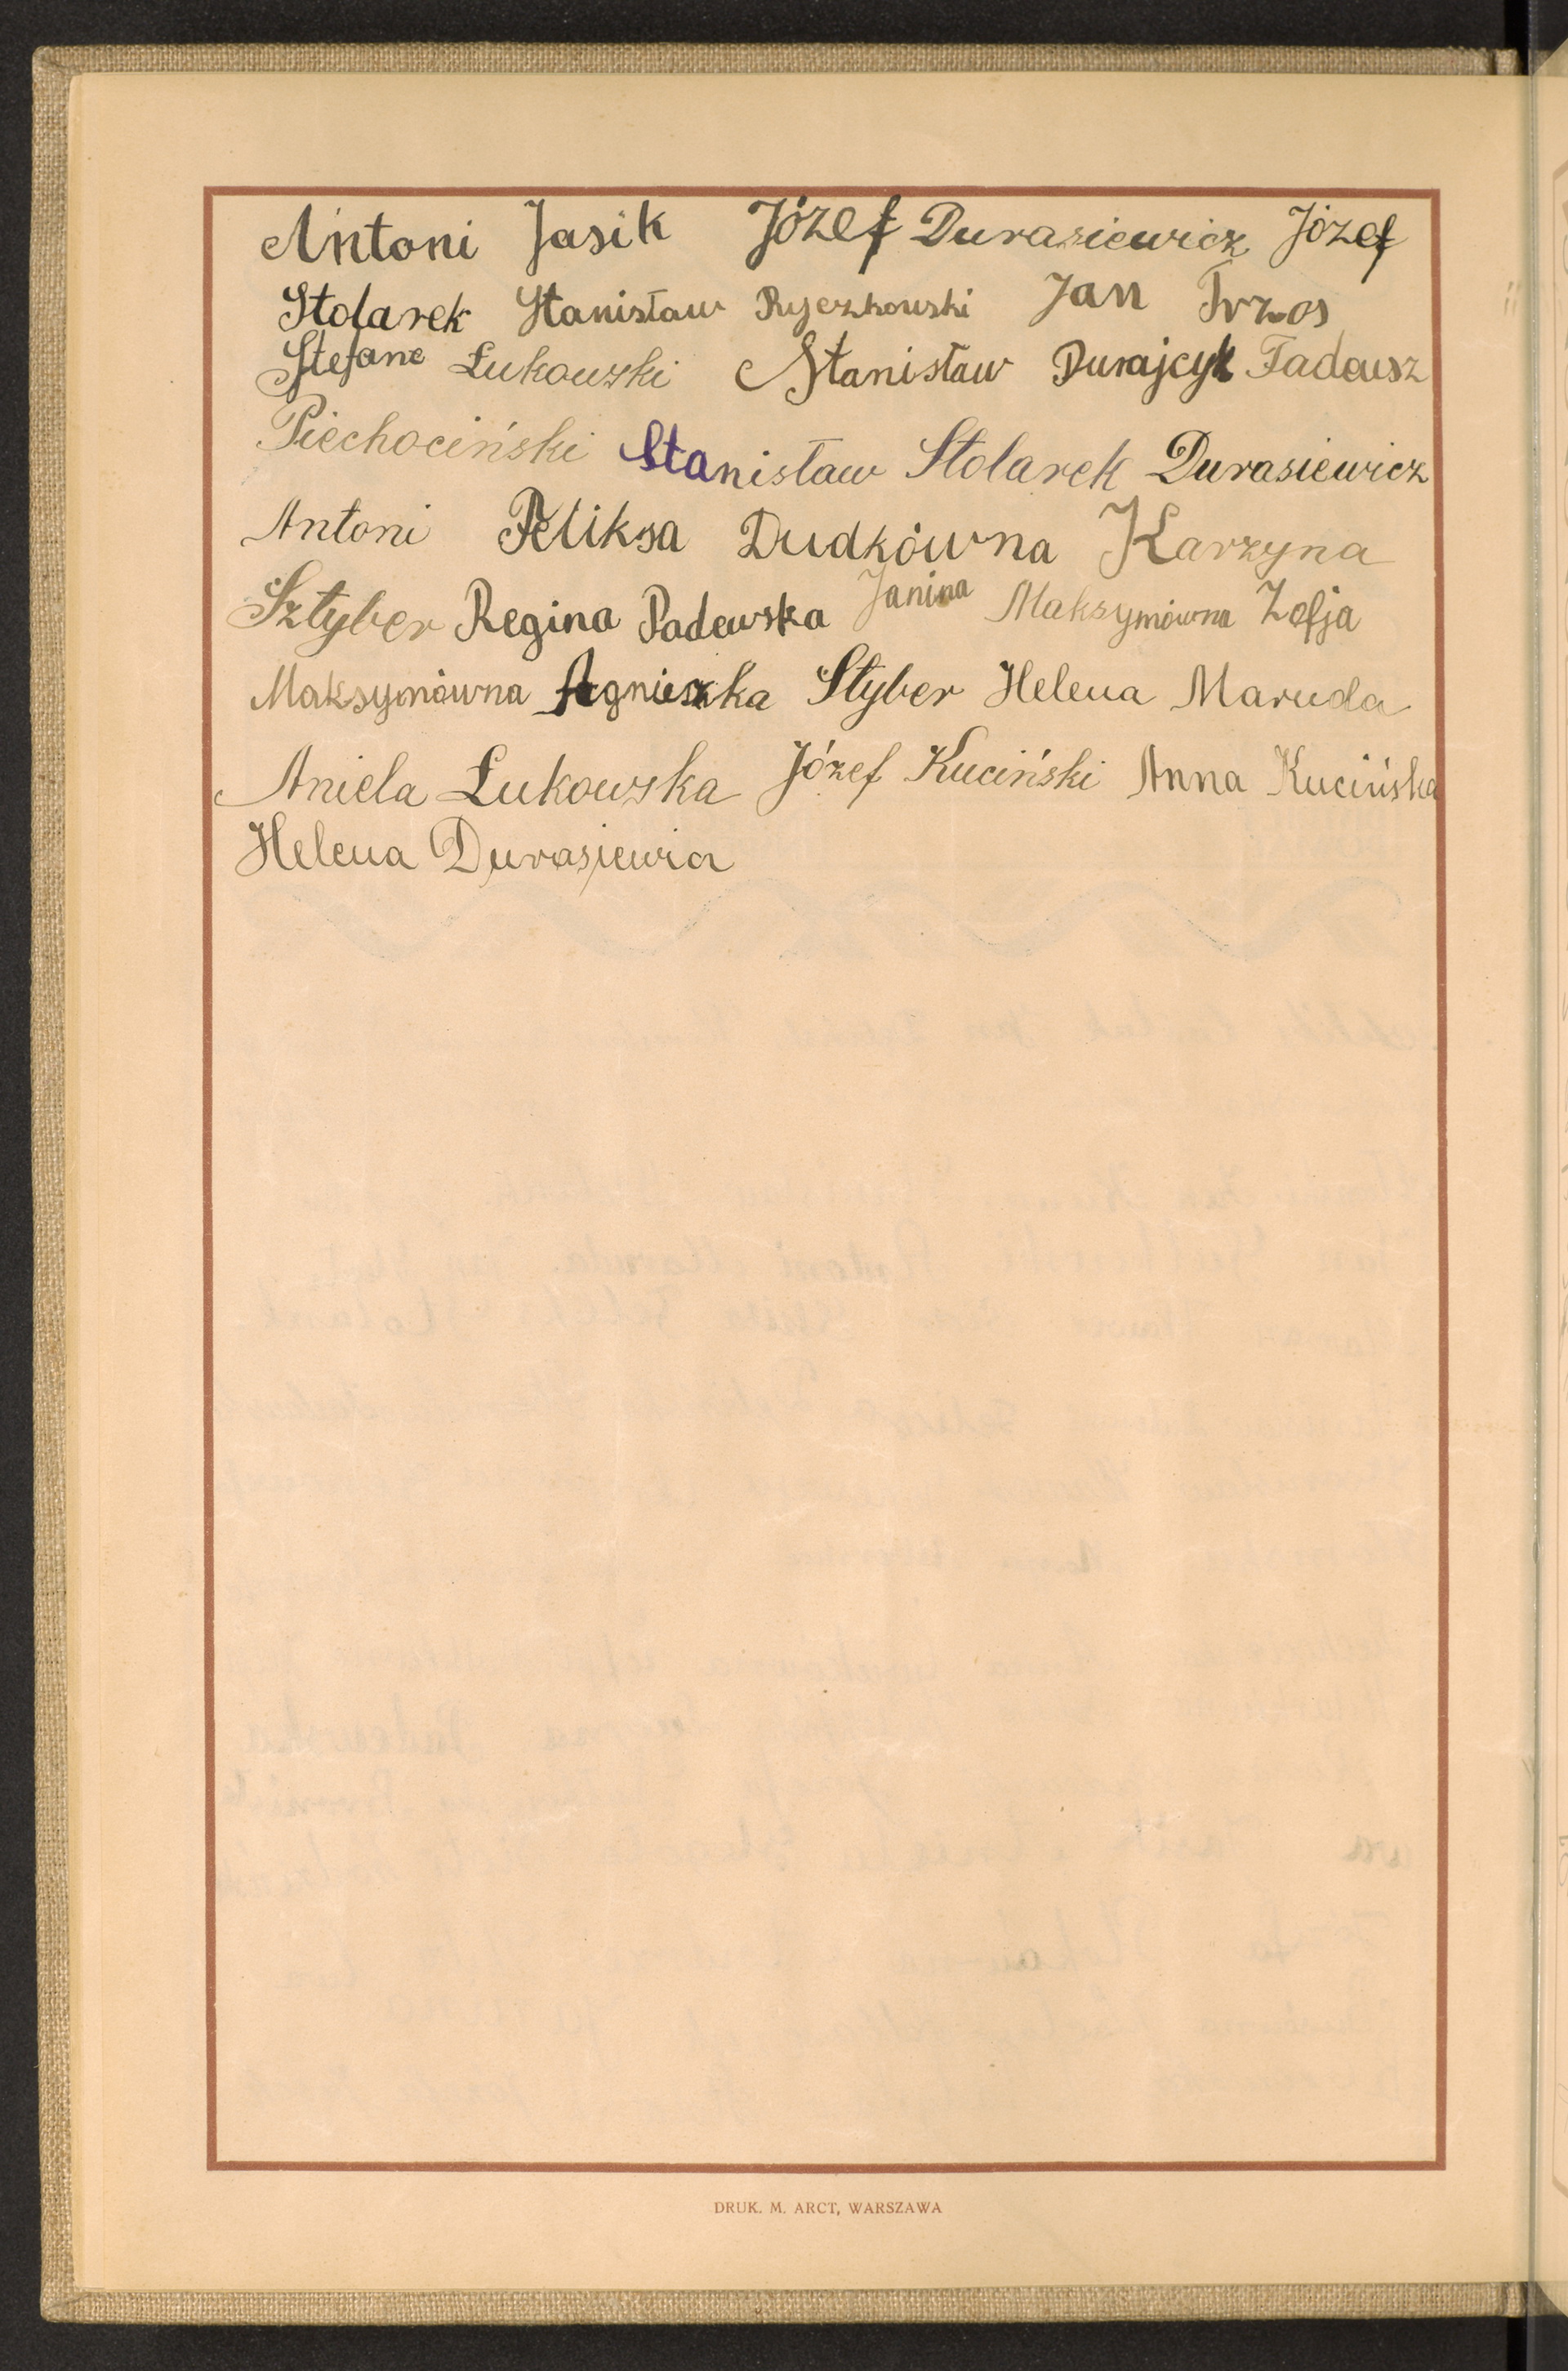 Antoni Jasik Józef Durasiewicz Józef
Stolarek Stanisław Ryczkowski Jan Trzos
Stefane Łukowski Stanisław Durajcyk Tadeusz
Piechociński Stanisław Stolarek Durasiewicz
Antoni Feliksa Dudkówna Karzyna
Sztyber Regina Padewska Janina Maksymówna Zofja
Maksymówna Agnieszka Styber Helena Maruda
Aniela Łukowska Józef Kuciński Anna Kucińska
Helena Durasiewicz
DRUK. M. ARCT, WARSZAWA